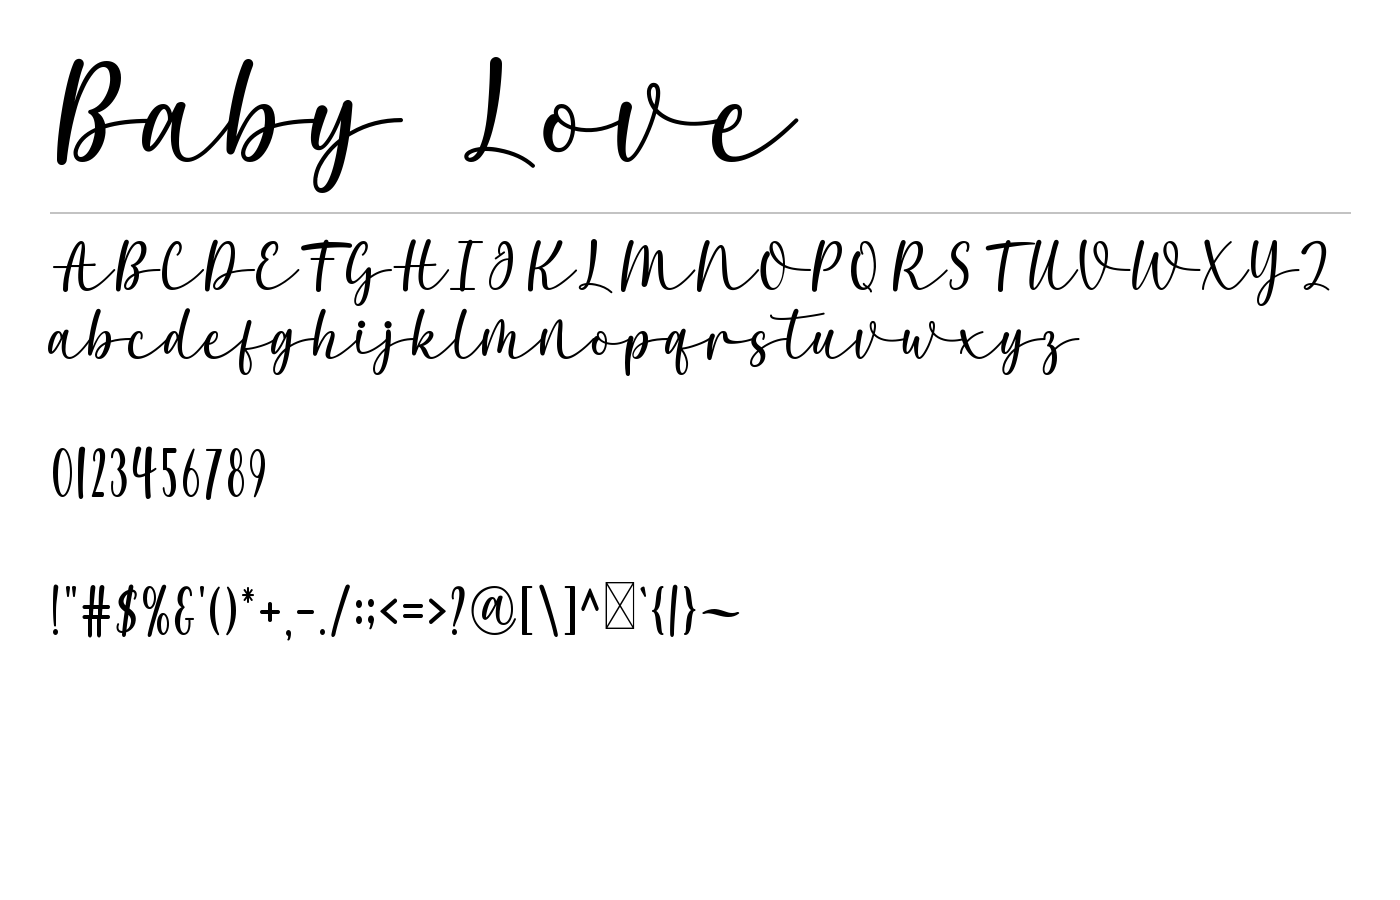 Baby Love
ABCDEFGHIJKLMNOPQRSTUVWXYZ
abcdefghijklmnopqrstuvwxyz
0123456789
!"#$%&'()*+,-./:;<=>?@[\]^`{|}~